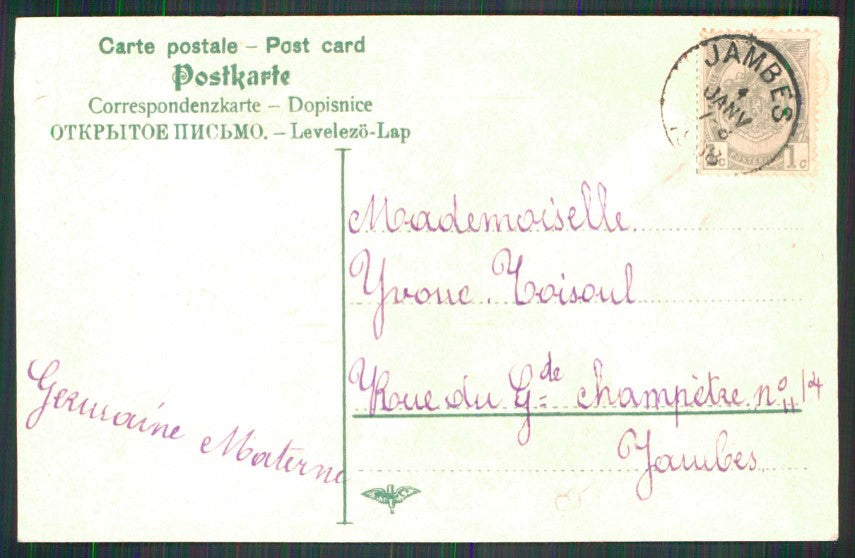 Carte postale – Post card
Postkarte
Correspondenzkarte – Dopisnice
ОТКРЫТОЕ ПИСЬМО. – Levelezö-Lap
JAMBES
JANV
1c
Mademoiselle
Yvonne Toisoul
Rue du Gde champêtre no 14
Jambes
Germaine Materne